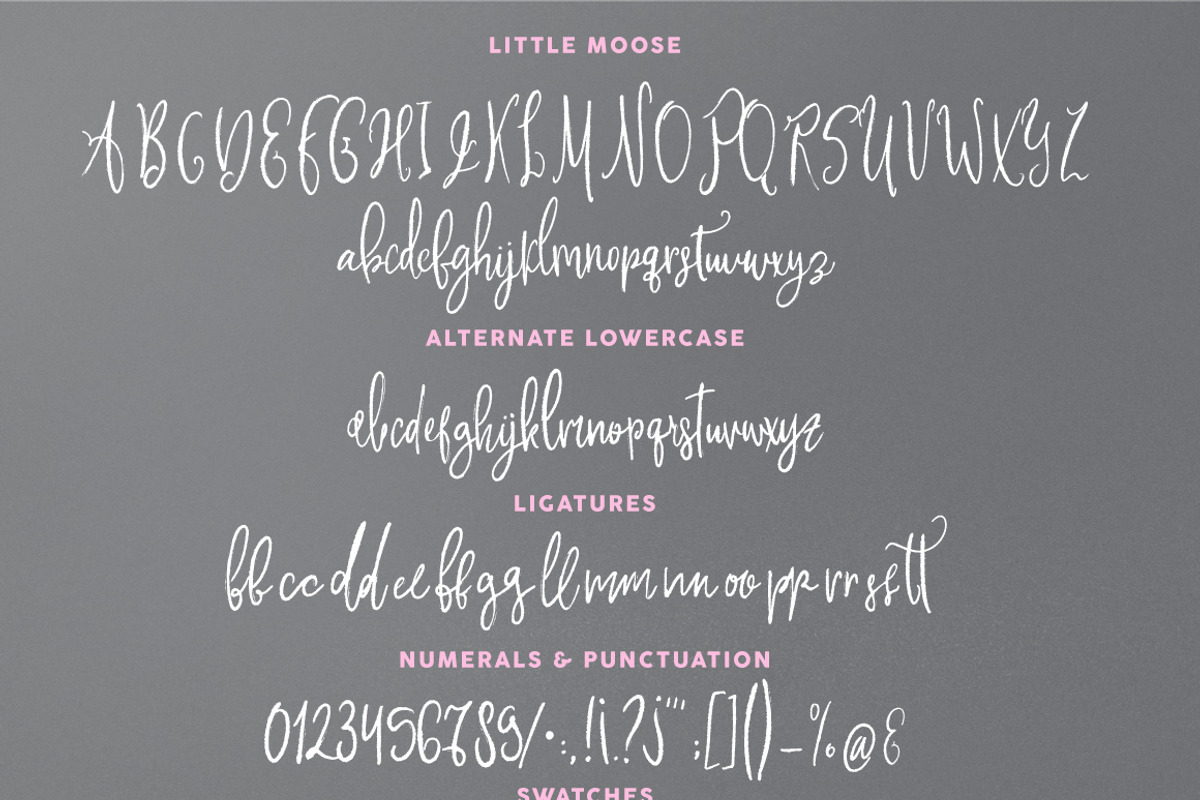 LITTLE MOOSE
A B C D E F G H I J K L M N O P Q R S U V W X Y Z
a b c d e f g h i j k l m n o p q r s t u v w x y z
ALTERNATE LOWERCASE
a b c d e f g h i j k l m n o p q r s t u v w x y z
LIGATURES
bb cc dd ee ff gg ll mm nn oo pp rr ss tt
NUMERALS & PUNCTUATION
0123456789/•:,!¡.?j'";[]()–%@&
SWATCHES